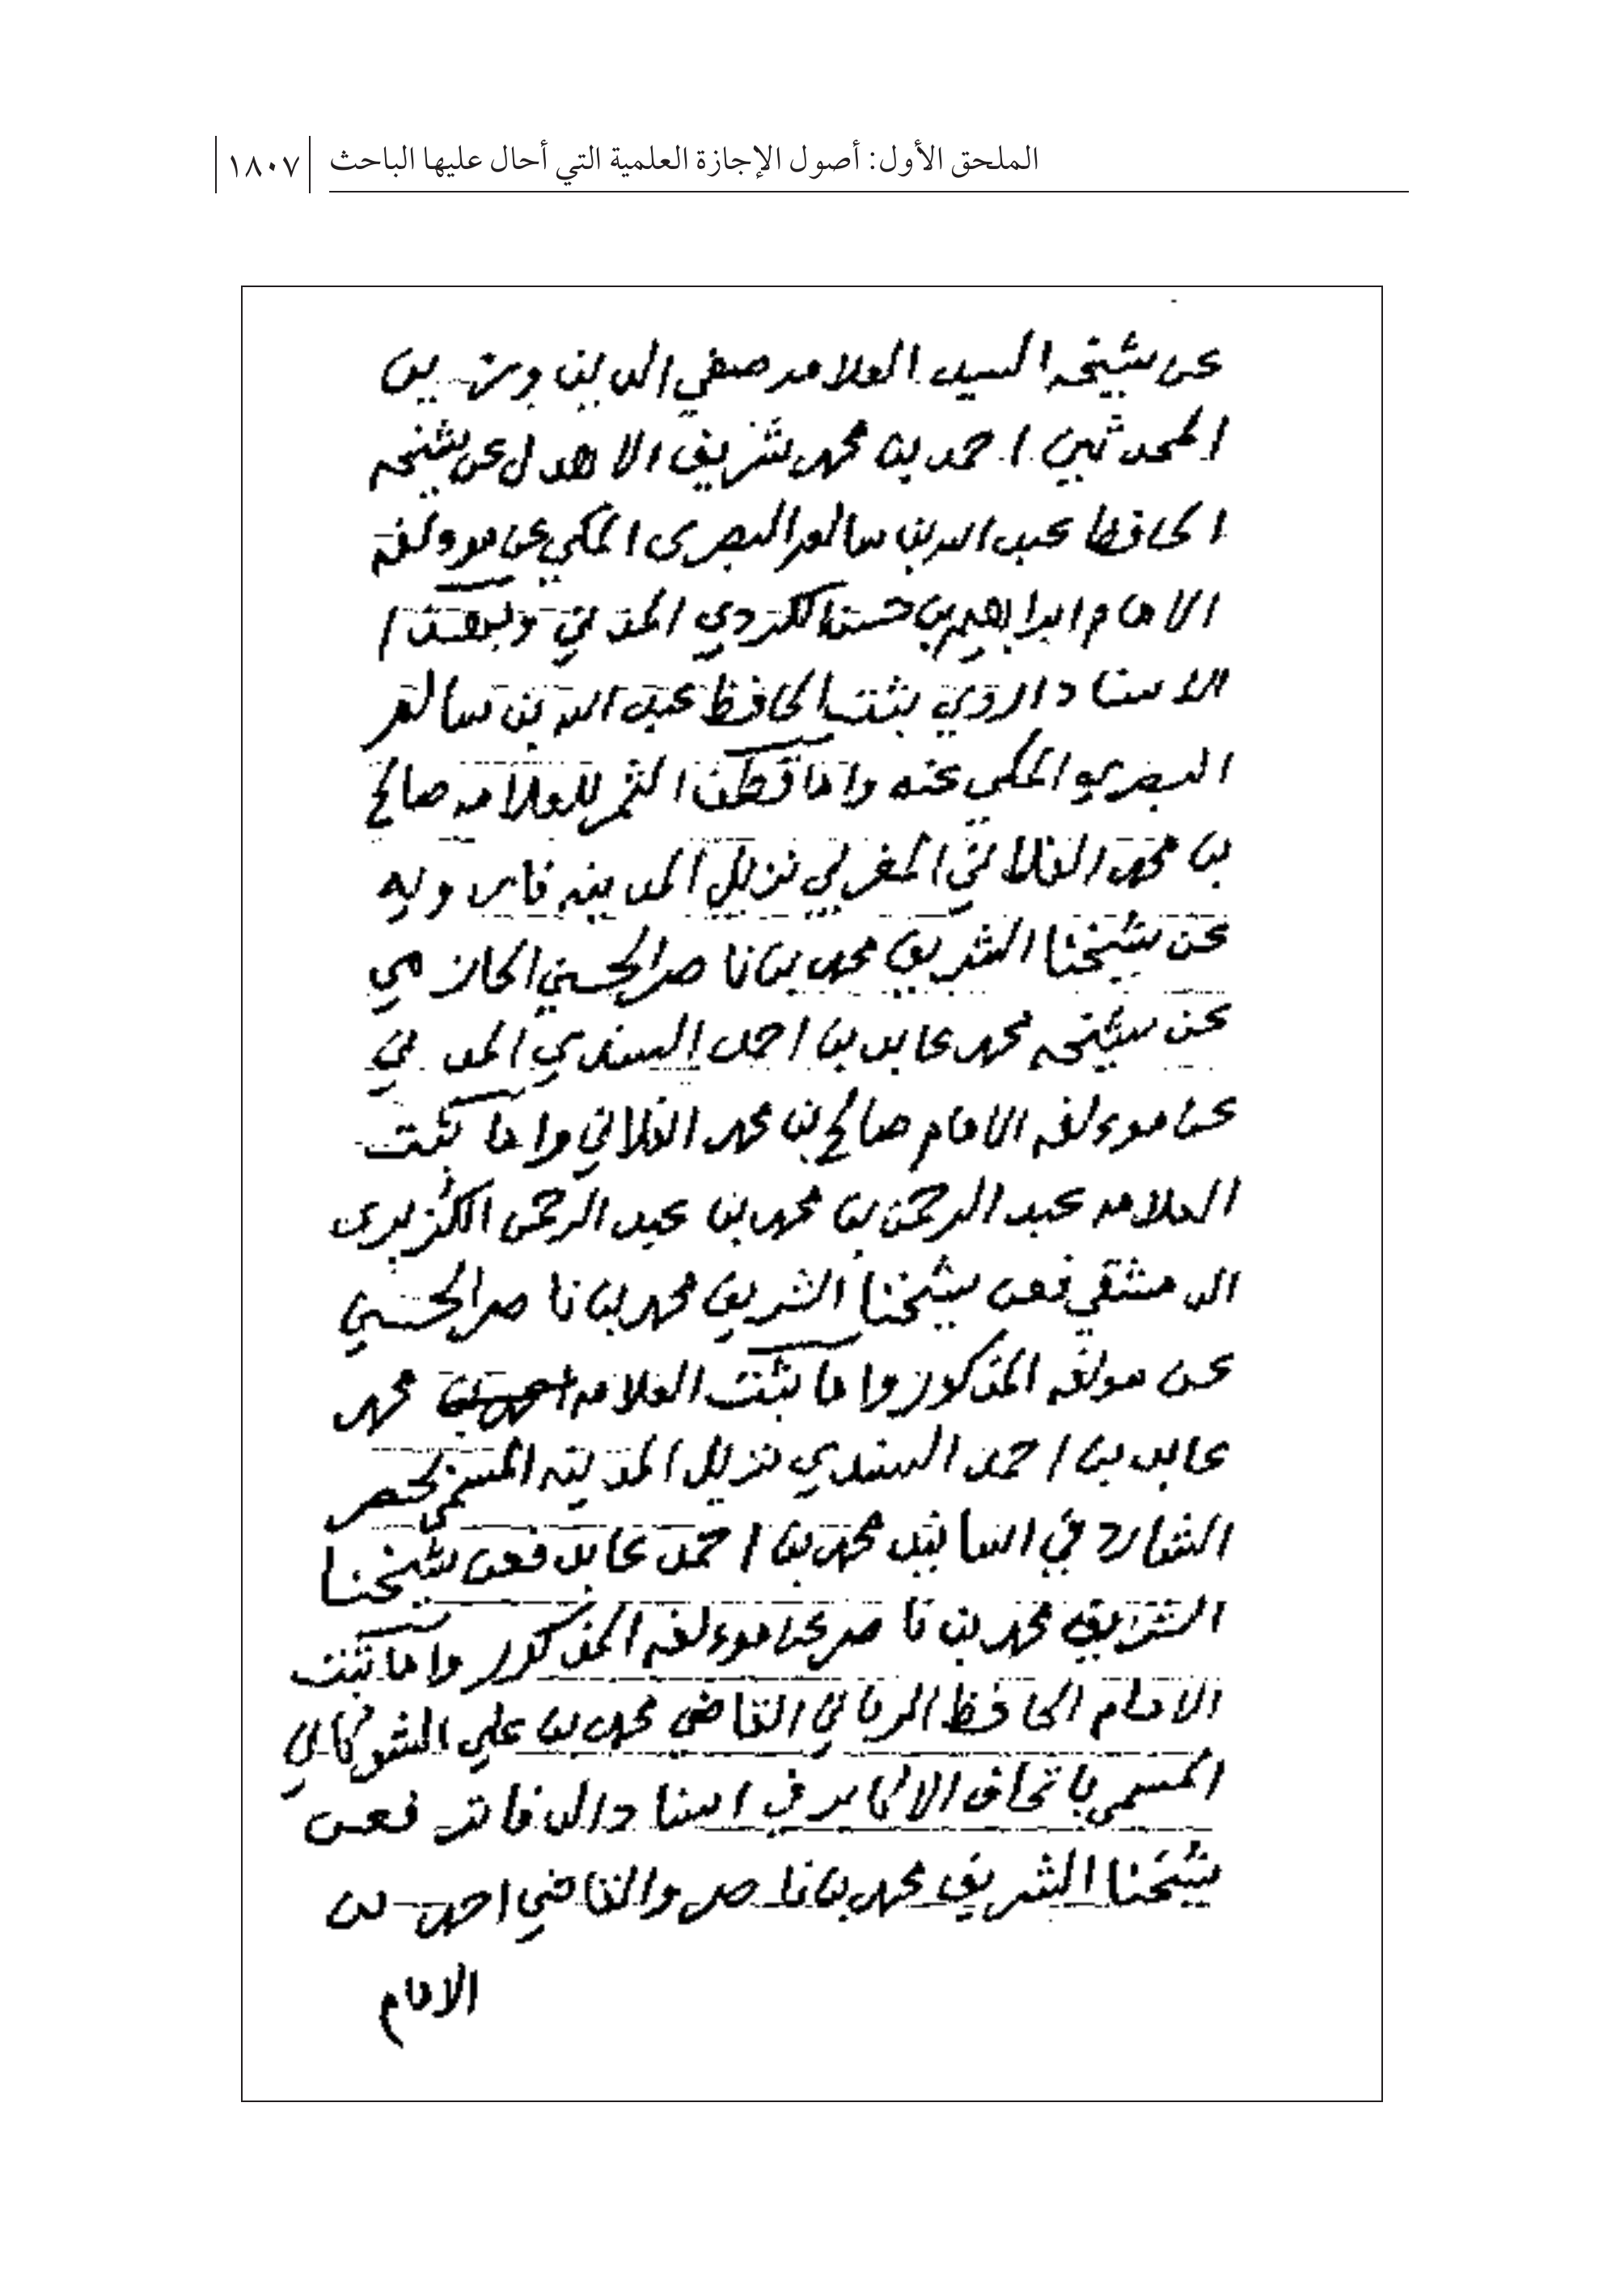 الملحق الأول: أصول الإجازة العلمية التي أحال عليها الباحث
١٨٠٧
عن شيخه السيد العلامه صفي الدين وزين
المحدثين احمد بن محمد شريف الاهدل عن شيخه
الحافظ عبد الله بن سالم البصرى المكي عن موءلفه
الامام ابراهيم بن حسن الكردي المدني وبهذا
الاسناد اروي ثبت الحافظ عبد الله بن سالم
البصري المكي عنه واما قطف الثمر للعلامه صالح
بن محمد الفلاني المغربي نزيل المدينه فاروايه
عن شيخنا الشريف محمد بن ناصر الحسني الحازمي
عن شيخه محمد عابد بن احمد السندي المدني
عن موءلفه الامام صالح بن محمد الفلاني واما ثبت
العلامه عبد الرحمن بن محمد بن عبد الرحمن الكزبرى
الدمشقي فعن شيخنا الشريف محمد بن ناصر الحسني
عن مولفه المذكور واما ثبت العلامه محمد
عابد بن احمد السندي نزيل المدينه المسمى بحصر
الشارد في اسانيد محمد بن احمد عابد فعن شيخنا
الشريف محمد بن ناصر عن موءلفه المذكور واما ثبت
الامام الحافظ الرباني القاضي محمد بن علي الشوكاني
المسمى باتحاف الاكابر في اسناد الدفاتر فعن
شيخنا الشريف محمد بن ناصر والقاضي احمد بن
الامام